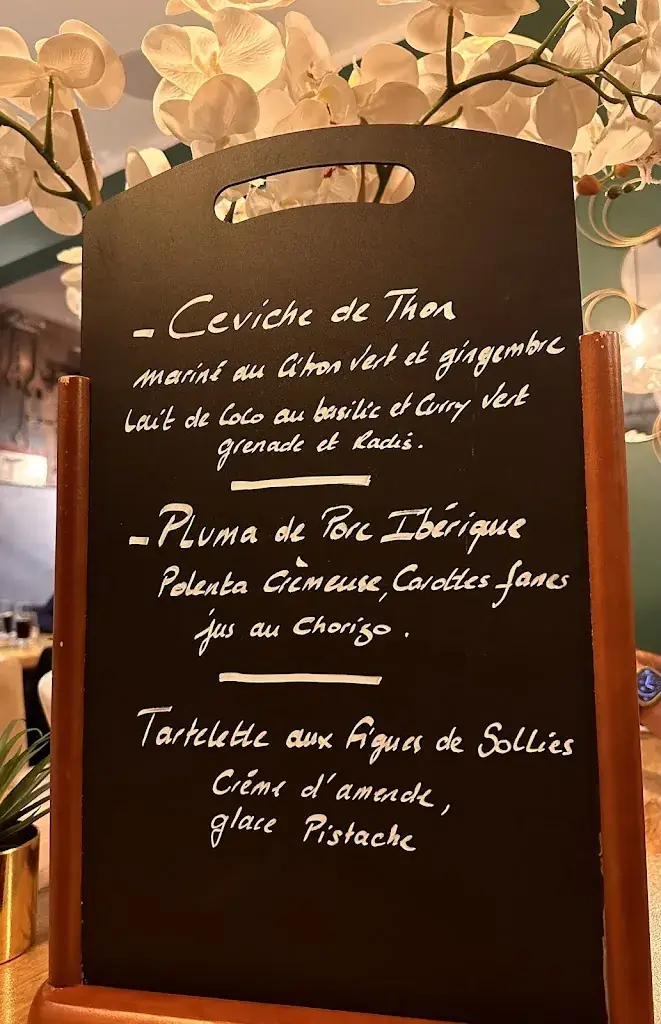 - Ceviche de Thon
mariné au Citron vert et gingembre
Lait de Coco au basilic et Curry vert
grenade et Radis.
- Pluma de Porc Ibérique
Polenta Crèmeuse, Carottes fanes
jus au Chorizo.
Tartelette aux figues de Solliès
Crème d'amende,
glace Pistache